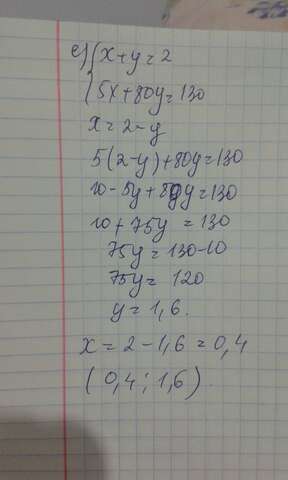 е) { x + y = 2
{ 5x + 80y = 130
x = 2 - y
5(2-y) + 80y = 130
10 - 5y + 80y = 130
10 + 75y = 130
75y = 130 - 10
75y = 120
y = 1,6.
x = 2 - 1,6 = 0,4
(0,4 ; 1,6).